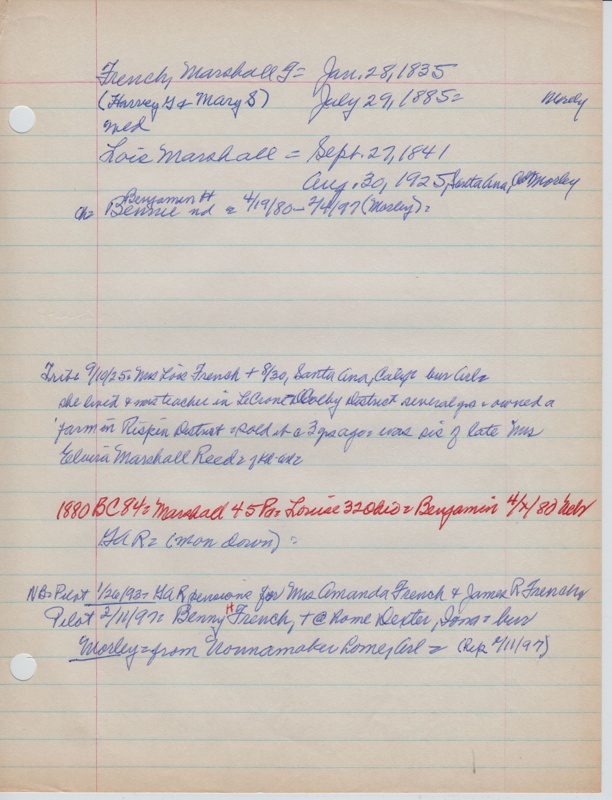 French, Marshall F= Jan. 28, 1835
(Harvey G + Mary S) July 29, 1885= Morly
wed
Lois Marshall = Sept. 27, 1841
Aug. 30, 1925, Santa Ana, Morley
Benjamin H
ch= Bennie nd = 4/19/80 - 2/4/97 (Morley) =
Trib= 9/10/25= Mrs Lois French + 8/30, Santa Ana, Calif= bur Arl=
she lived + was teacher in LeCront + Colby District several yrs = owned a
farm in Rispin District = sold it a 3 yrs ago = was sis of late Mrs
Elvira Marshall Reed=
1880 BC 84= Marshall 45 Pa= Louise 32 Ohio= Benjamin 4/x/80 Nebr
GAR= (mon down) =
NB= Pilot 1/26/93= GAR pensions for Mrs Amanda French + James R French=
Pilot 2/11/97= Benny H French, + @ home Dexter, Iowa= bur
Morley= from Nunnamaker home, Arl = (Rep 2/11/97)